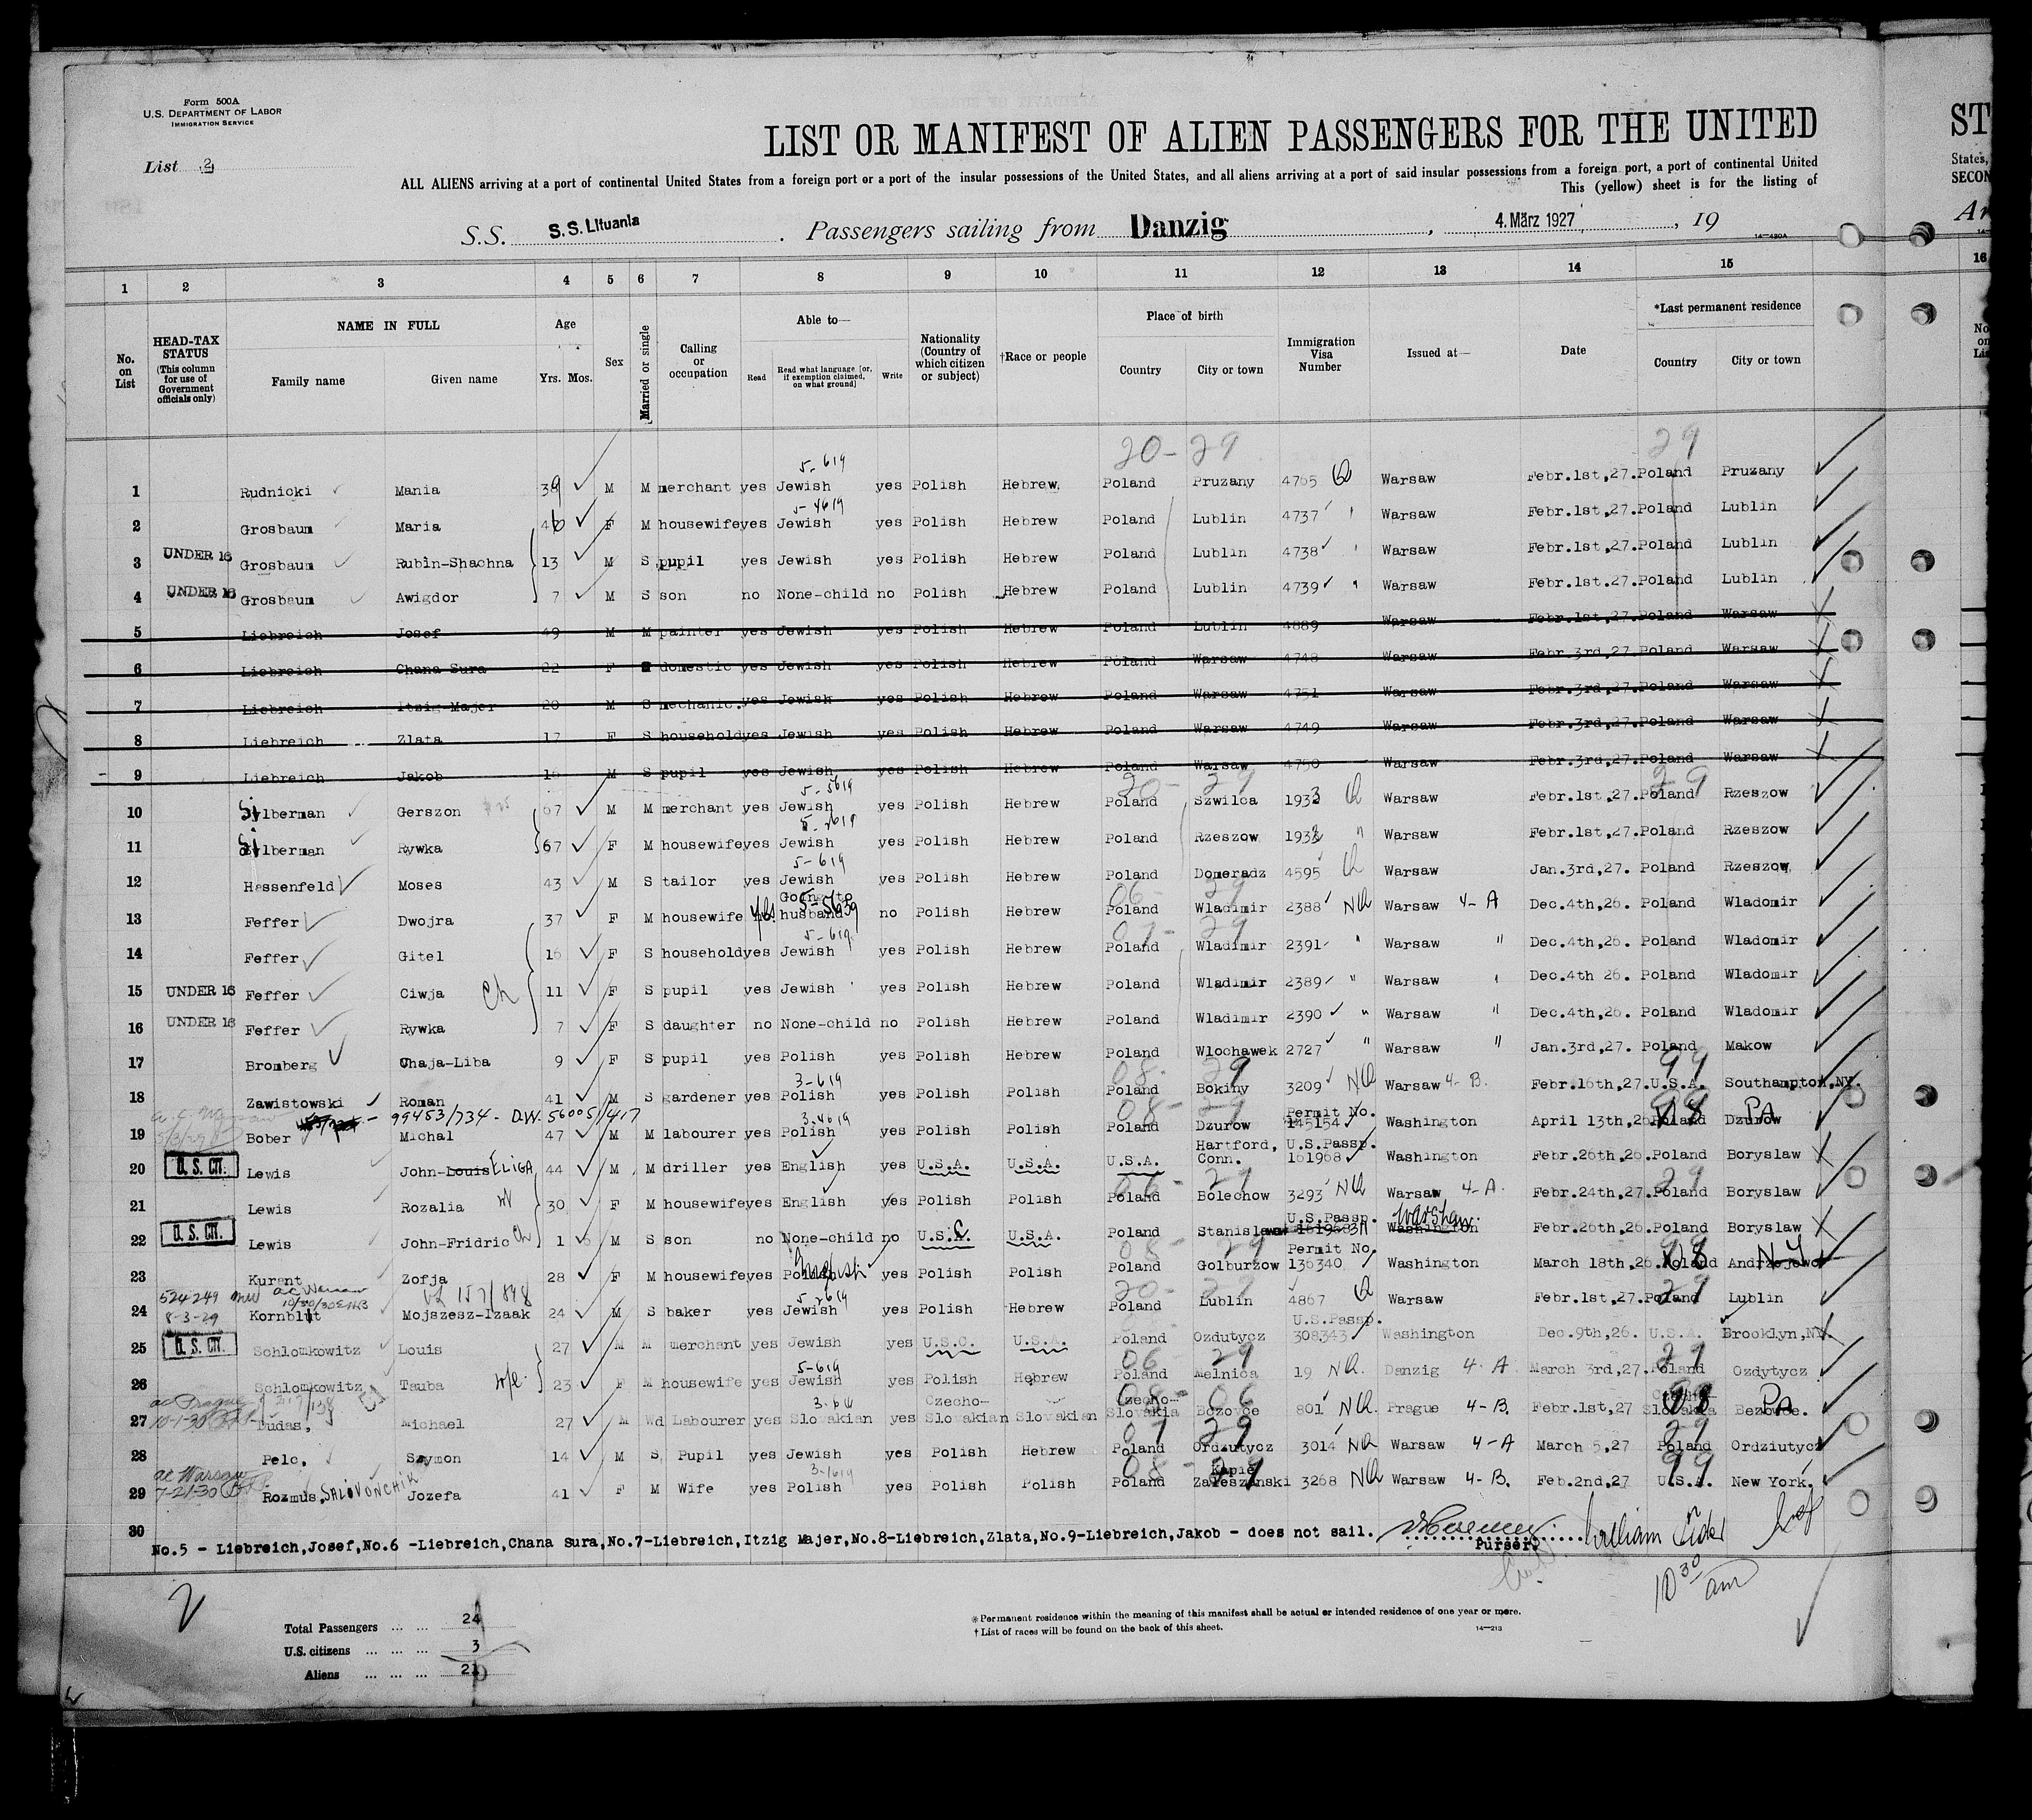 Form 500A
U.S. DEPARTMENT OF LABOR
IMMIGRATION SERVICE
List 2
LIST OR MANIFEST OF ALIEN PASSENGERS FOR THE UNITED
ST
ALL ALIENS arriving at a port of continental United States from a foreign port or a port of the insular possessions of the United States, and all aliens arriving at a port of said insular possessions from a foreign port, a port of continental United
States,
This (yellow) sheet is for the listing of
SECON
S.S. S.S. Lituania . Passengers sailing from Danzig , 4. März 1927 , 19
Ar
14—430A
1 2 3 4 5 6 7 8 9 10 11 12 13 14 15 16
No. on List
HEAD-TAX STATUS (This column for use of Government officials only)
NAME IN FULL Family name Given name
Age Yrs. Mos.
Sex
Married or single
Calling or occupation
Able to— Read Read what language [or, if exemption claimed, on what ground] Write
Nationality (Country of which citizen or subject)
†Race or people
Place of birth Country City or town
Immigration Visa Number
Issued at—
Date
*Last permanent residence Country City or town
No on Lis
20-29 29
5-619
1 Rudnicki Mania 39 M M merchant yes Jewish yes Polish Hebrew Poland Pruzany 4765 Warsaw Febr.1st,27. Poland Pruzany
5-4619
2 Grosbaum Maria 46 F M housewife yes Jewish yes Polish Hebrew Poland Lublin 4737 " Warsaw Febr.1st,27. Poland Lublin
3 UNDER 16 Grosbaum Rubin-Shachna 13 M S pupil yes Jewish yes Polish Hebrew Poland Lublin 4738 " Warsaw Febr.1st,27. Poland Lublin
4 UNDER 16 Grosbaum Awigdor 7 M S son no None-child no Polish Hebrew Poland Lublin 4739 " Warsaw Febr.1st.27. Poland Lublin
5 Liebreich Josef 49 M M painter yes Jewish yes Polish Hebrew Poland Lublin 4889 Warsaw Febr.1st,27. Poland Warsaw
6 Liebreich Chana Sura 22 F domestic yes Jewish yes Polish Hebrew Poland Warsaw 4748 Warsaw Febr.3rd,27. Poland Warsaw
7 Liebreich Itzig-Majer 20 M S mechanic. yes Jewish yes Polish Hebrew Poland Warsaw 4751 Warsaw Febr.3rd,27. Poland Warsaw
8 Liebreich Zlata 17 F S household yes Jewish yes Polish Hebrew Poland Warsaw 4749 Warsaw Febr.3rd,27. Poland Warsaw
9 Liebreich Jakob 16 M S pupil yes Jewish yes Polish Hebrew Poland Warsaw 4750 Warsaw Febr.3rd,27. Poland Warsaw
5-5619 20- 29 29
10 Silberman Gerszon 67 M M merchant yes Jewish yes Polish Hebrew Poland Szwilca 1933 Warsaw Febr.1st,27. Poland Rzeszow
11 Silberman Rywka 67 F M housewife yes Jewish yes Polish Hebrew Poland Rzeszow 1932 " Warsaw Febr.1st,27. Poland Rzeszow
5-619
12 Hassenfeld Moses 43 M S tailor yes Jewish yes Polish Hebrew Poland Domeradz 4595 Warsaw Jan.3rd,27. Poland Rzeszow
Going to
13 Feffer Dwojra 37 F M housewife yes husband no Polish Hebrew Poland Wladimir 2388 NQ Warsaw 4-A Dec.4th,26. Poland Wladomir
5-619
14 Feffer Gitel 16 F S household yes Jewish yes Polish Hebrew Poland Wladimir 2391 " Warsaw " Dec.4th,26. Poland Wladomir
15 UNDER 16 Feffer Ciwja Ch 11 F S pupil yes Jewish yes Polish Hebrew Poland Wladimir 2389 " Warsaw " Dec.4th 26. Poland Wladomir
16 UNDER 16 Feffer Rywka 7 F S daughter no None-child no Polish Hebrew Poland Wladimir 2390 " Warsaw " Dec.4th,26. Poland Wladomir
17 Bromberg Chaja-Liba 9 F S pupil yes Polish yes Polish Hebrew Poland Wlochawek 2727 " Warsaw " Jan.3rd,27. Poland Makow
3-619 08- 29 99
18 Zawistowski Roman 41 M S gardener yes Polish yes Polish Polish Poland Bokiny 3209 NQ Warsaw 4-B. Febr.16th,27. U.S.A. Southampton,NY.
99453/734 - D.W. 56005/417 3-4619 Permit No.
19 Bober Michal 47 M M labourer yes Polish yes Polish Polish Poland Dzurow 145154 Washington April 13th,26. Poland Dzurow PA
Hartford, U.S.Passp.
20 U.S. CIT. Lewis John-Louis ELIGA 44 M M driller yes English yes U.S.A. U.S.A. U.S.A. Conn. 161968 Washington Febr.26th,26. Poland Boryslaw
21 Lewis Rozalia W 30 F M housewife yes English yes Polish Polish Poland Bolechow 3293 NQ Warsaw 4-A. Febr.24th,27. Poland Boryslaw
U.S.Passp. Warshaw
22 U.S. CIT. Lewis John-Fridric Ch 1 M S son no None-child no U.S.C. U.S.A. Poland Stanislawow Washington Febr.26th,26. Poland Boryslaw
Permit No.
23 Kurant Zofja 28 F M housewife yes Polish yes Polish Polish Poland Golburzow 136340 Washington March 18th,26. Poland Andrzejewo NY
524249 ac Warsaw 10/30/30 157/898
24 8-3-29 Kornblut Mojszesz-Izaak 24 M S baker yes Jewish yes Polish Hebrew Poland Lublin 4867 Warsaw Febr.1st,27. Poland Lublin
U.S.Passp.
25 U.S. CIT. Schlomkowitz Louis 27 M M merchant yes Jewish yes U.S.C. U.S.A. Poland Ozdutycz 308343 Washington Dec.9th,26. U.S.A. Brooklyn,NY.
5-619 06 29 29
26 Schlomkowitz Tauba wife 23 F M housewife yes Jewish yes Polish Hebrew Poland Melnica 19 NQ. Danzig 4-A March 3rd,27. Poland Ozdytycz
ac Prague 3-614 Czecho- Czecho-
27 10-1-30 Dudas, Michael 27 M Wd Labourer yes Slovakian yes Slovakian Slovakian Slovakia Bozovce 801 NQ. Prague 4-B. Febr.1st,27 Slovakia Bezovce. PA
28 Pelc, Szymon 14 M S Pupil yes Jewish yes Polish Hebrew Poland Ordziutycz 3014 NQ Warsaw 4-A March 5,27 Poland Ordziutycz
ac Warsaw 3-1619 Kapie
29 7-21-30 Rozmus, SALIVONCHIK Jozefa 41 F M Wife yes Polish yes Polish Polish Poland Zaleszanski 3268 NQ Warsaw 4-B. Feb.2nd,27 U.S.A. New York.
30
No.5 - Liebreich,Josef,No.6 -Liebreich,Chana Sura,No.7-Liebreich,Itzig Majer,No.8-Liebreich,Zlata,No.9-Liebreich,Jakob - does not sail.
Purser.
10 30 am
Total Passengers 24
U.S. citizens 3
Aliens 21
*Permanent residence within the meaning of this manifest shall be actual or intended residence of one year or more.
†List of races will be found on the back of this sheet.
14—213